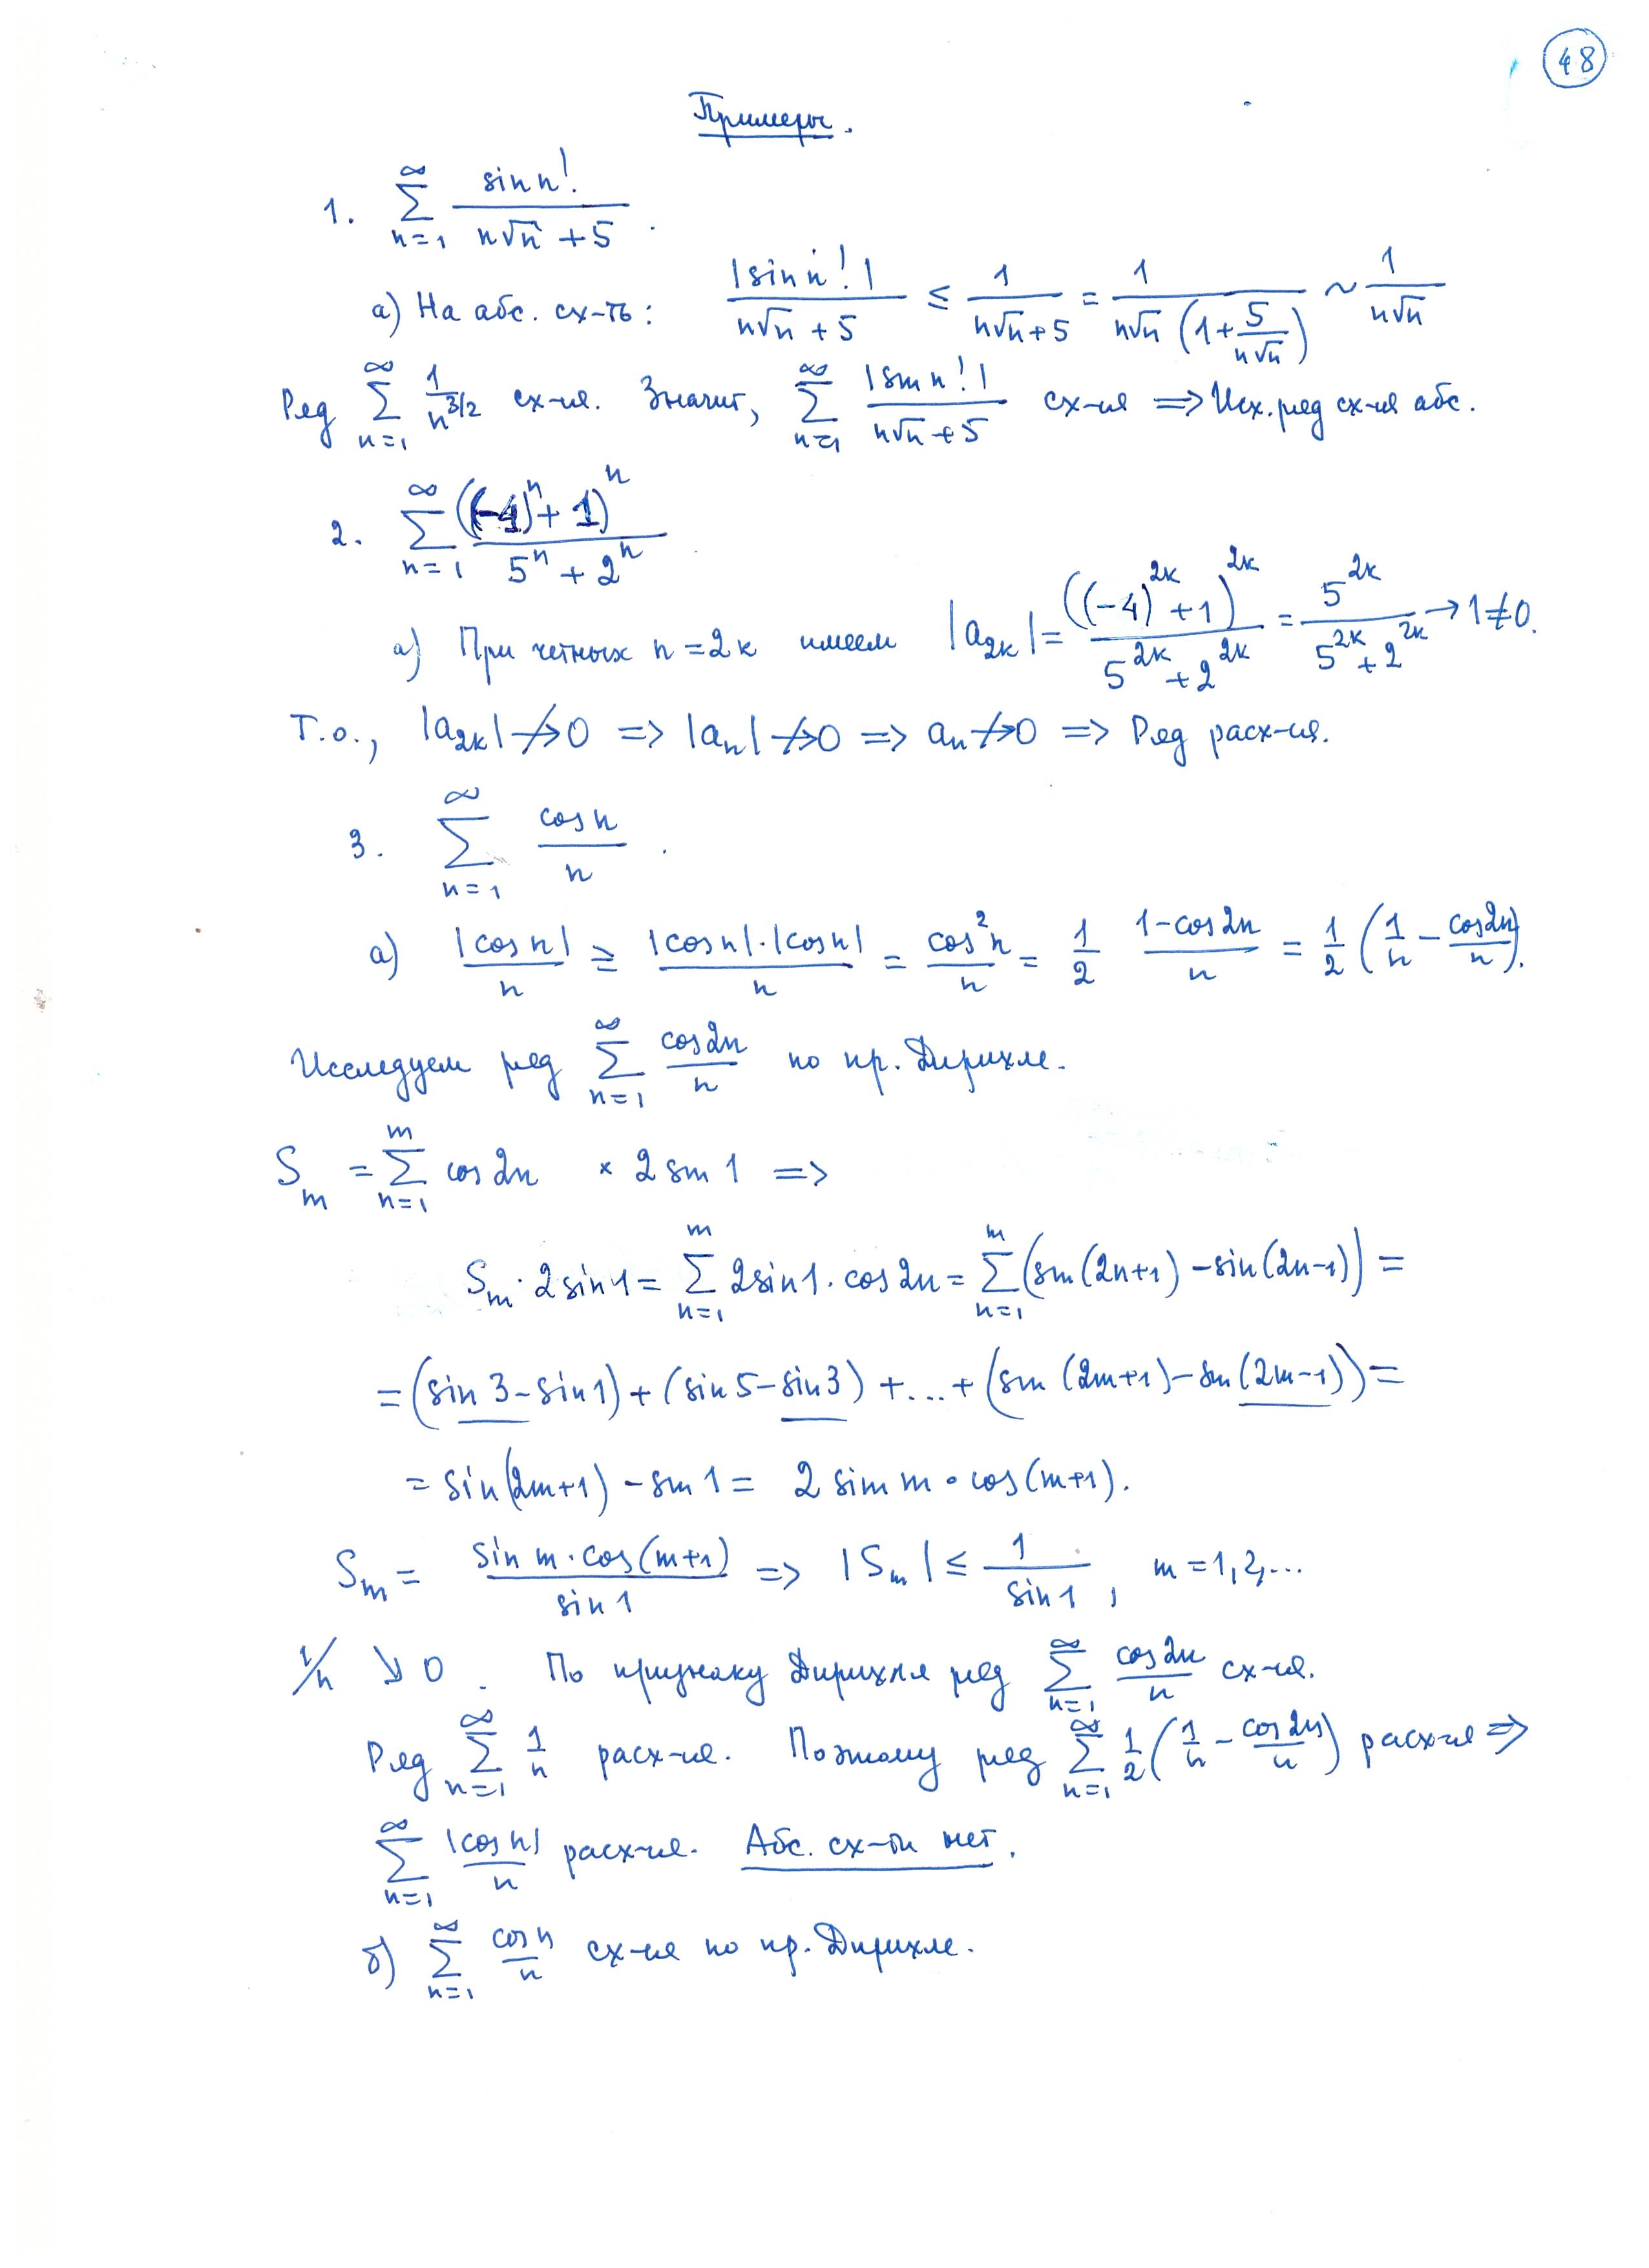 48
Примеры.
1. \sum_{n=1}^{\infty} \frac{\sin n!}{n\sqrt{n}+5}.
а) На абс. сх-ть: \frac{|\sin n!|}{n\sqrt{n}+5} \le \frac{1}{n\sqrt{n}+5} = \frac{1}{n\sqrt{n}(1+\frac{5}{n\sqrt{n}})} \sim \frac{1}{n\sqrt{n}}
Ряд \sum_{n=1}^{\infty} \frac{1}{n^{3/2}} сх-ся. Значит, \sum_{n=1}^{\infty} \frac{|\sin n!|}{n\sqrt{n}+5} сх-ся => Исх. ряд сх-ся абс.
2. \sum_{n=1}^{\infty} \frac{((-4)^n+1)^n}{5^n+2^n}
а) При четных n=2к имеем |a_{2к}| = \frac{((-4)^{2к}+1)^{2к}}{5^{2к}+2^{2к}} = \frac{5^{2к}}{5^{2к}+2^{2к}} → 1≠0.
Т.о., |a_{2к}| ↛ 0 => |a_n| ↛ 0 => a_n ↛ 0 => Ряд расх-ся.
3. \sum_{n=1}^{\infty} \frac{\cos n}{n}.
а) \frac{|\cos n|}{n} \ge \frac{|\cos n|·|\cos n|}{n} = \frac{\cos^2 n}{n} = \frac{1}{2} \frac{1-\cos 2n}{n} = \frac{1}{2}(\frac{1}{n} - \frac{\cos 2n}{n}).
Исследуем ряд \sum_{n=1}^{\infty} \frac{\cos 2n}{n} по пр. Дирихле.
S_m = \sum_{n=1}^{m} \cos 2n × 2 \sin 1 =>
S_m · 2 \sin 1 = \sum_{n=1}^{m} 2 \sin 1 · \cos 2n = \sum_{n=1}^{m} (\sin(2n+1) - \sin(2n-1)) =
= (\sin 3 - \sin 1) + (\sin 5 - \sin 3) + ... + (\sin(2m+1) - \sin(2m-1)) =
= \sin(2m+1) - \sin 1 = 2 \sin m · \cos(m+1).
S_m = \frac{\sin m · \cos(m+1)}{\sin 1} => |S_m| \le \frac{1}{\sin 1}, m=1,2,...
1/n ↘ 0. По признаку Дирихле ряд \sum_{n=1}^{\infty} \frac{\cos 2n}{n} сх-ся.
Ряд \sum_{n=1}^{\infty} \frac{1}{n} расх-ся. Поэтому ряд \sum_{n=1}^{\infty} \frac{1}{2}(\frac{1}{n} - \frac{\cos 2n}{n}) расх-ся =>
\sum_{n=1}^{\infty} \frac{|\cos n|}{n} расх-ся. Абс. сх-ти нет.
б) \sum_{n=1}^{\infty} \frac{\cos n}{n} сх-ся по пр. Дирихле.